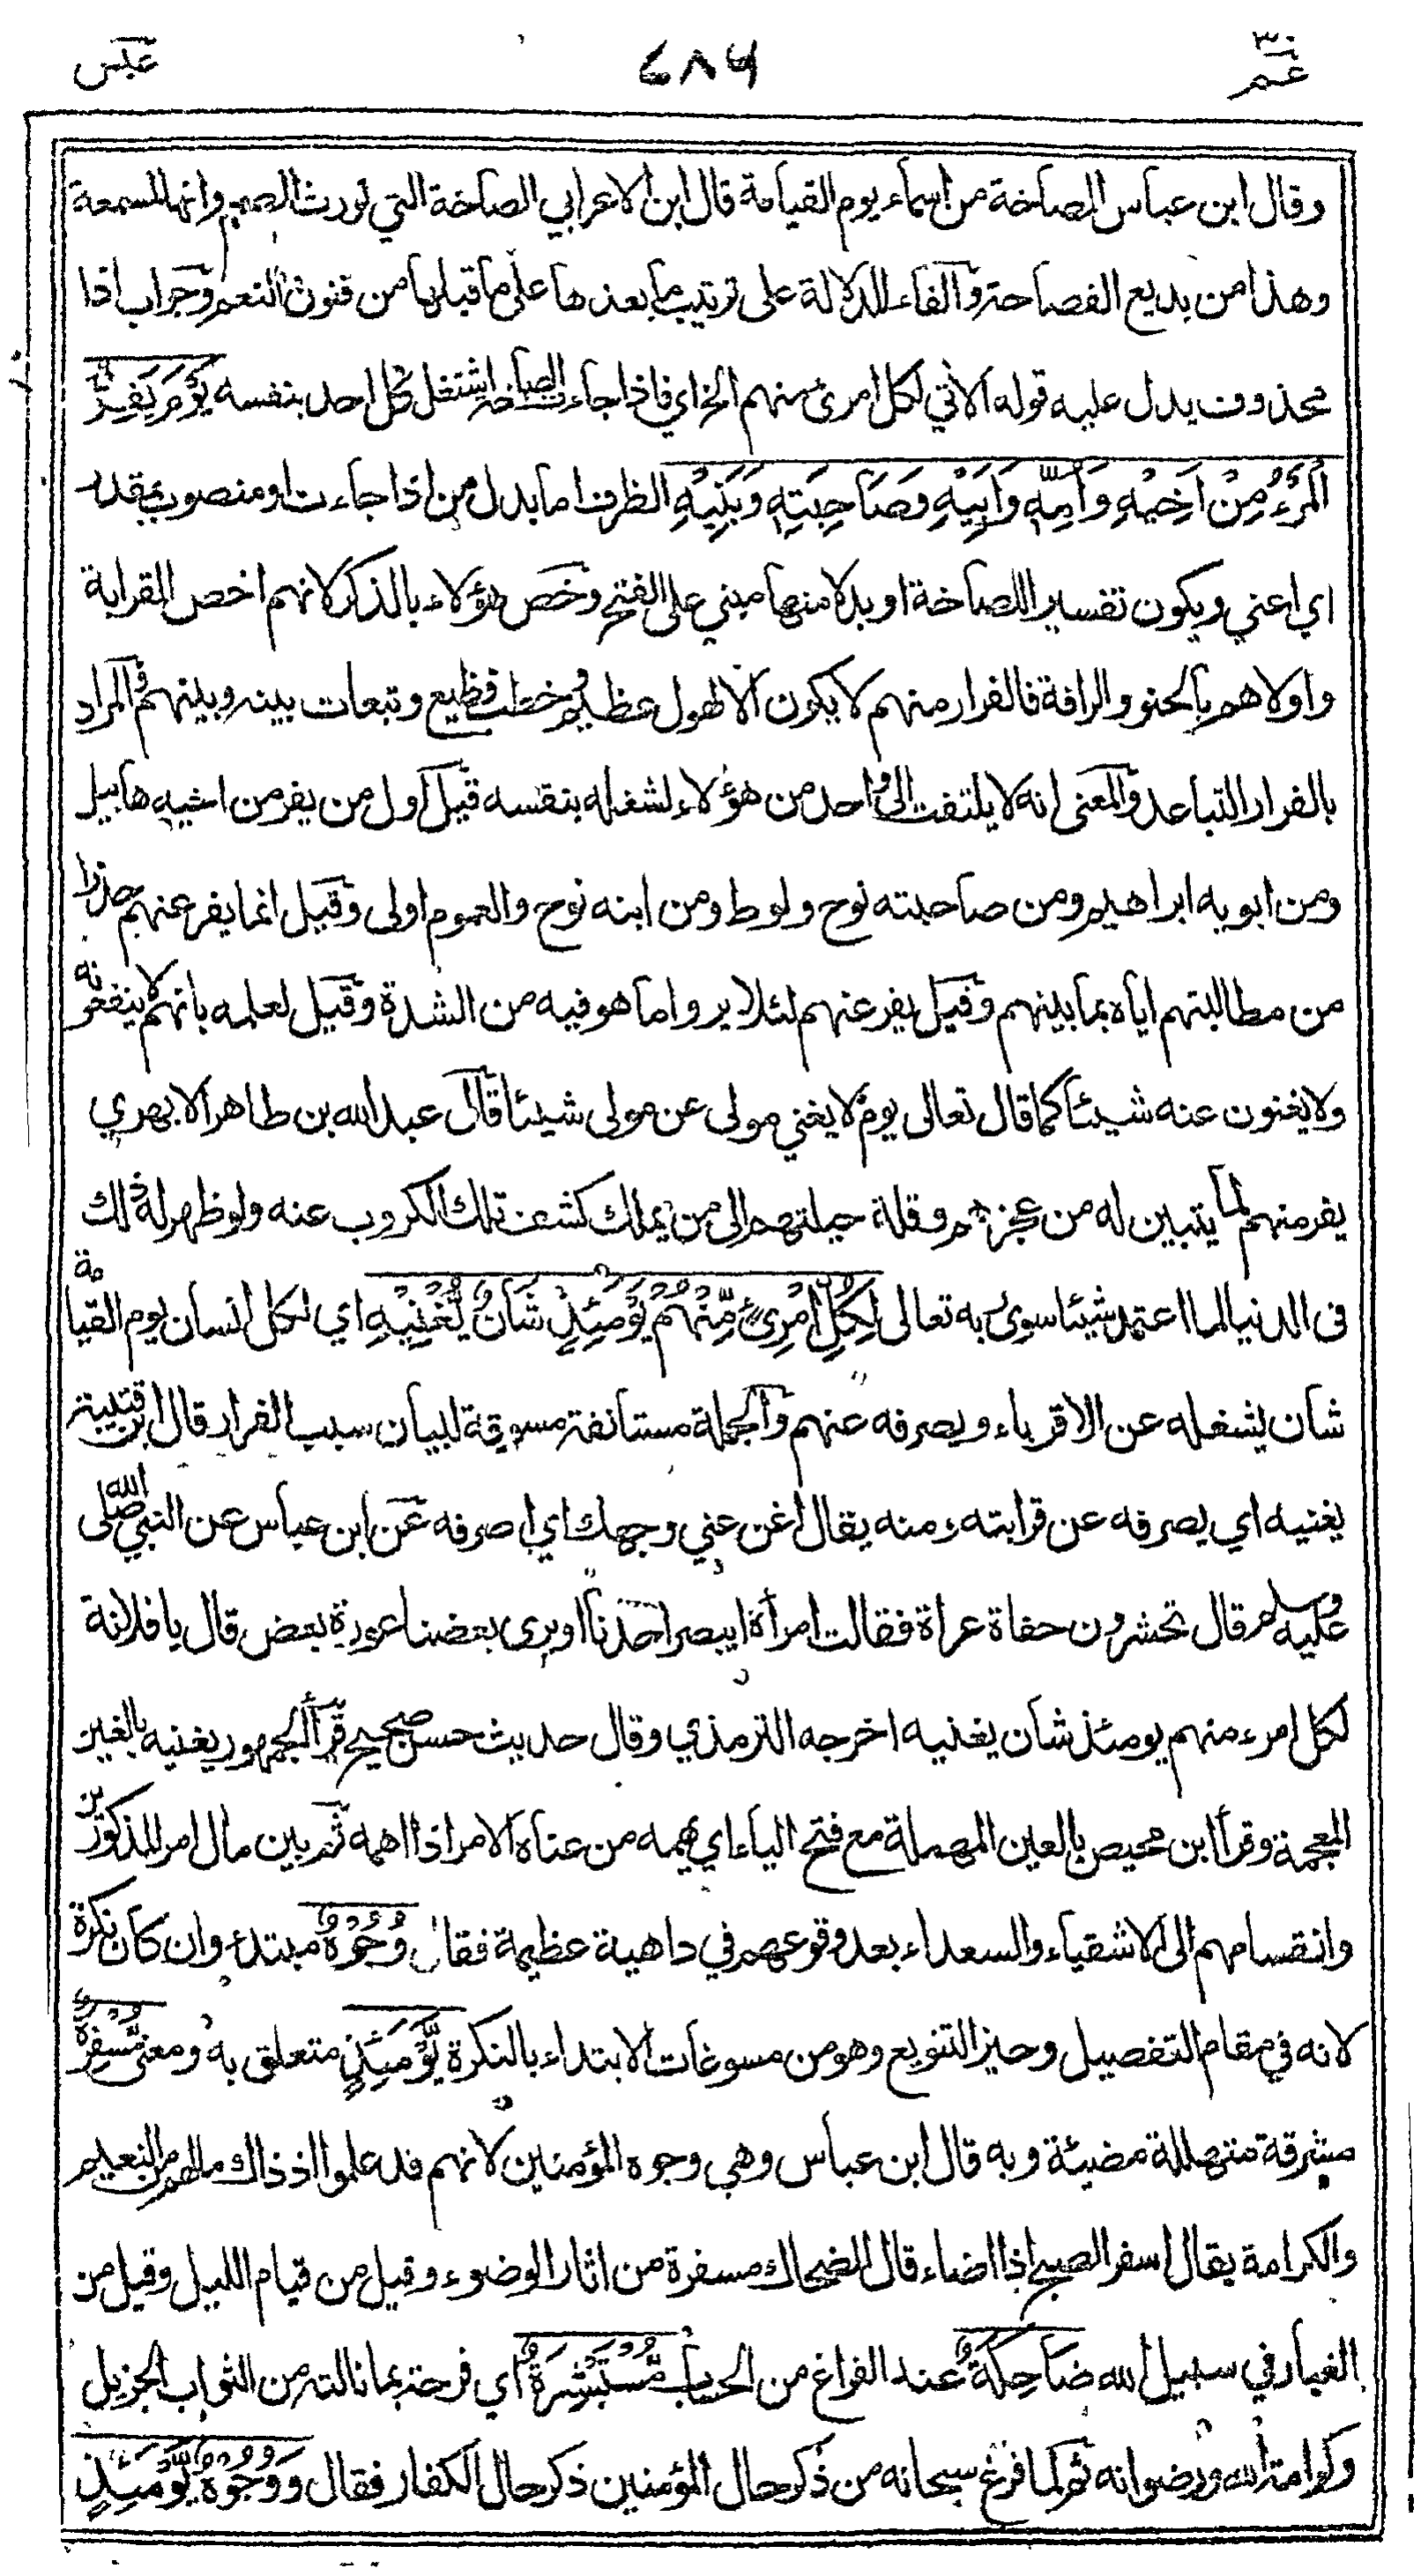 عم ٣٠
٤٨٦
عبس
وقال ابن عباس الصاخة من اسماء يوم القيامة قال ابن الاعرابي الصاخة التي تورث الصمم وانها لمسمعة
وهذا من بديع الفصاحة والفاء للدلالة على ترتيب ما بعدها على ما قبلها من فنون النعم وجواب اذا
محذوف يدل عليه قوله الآتي لكل امرئ منهم الخ اي فاذا جاءت الصاخة اشتغل كل احد بنفسه يَوْمَ يَفِرُّ
الْمَرْءُ مِنْ اَخِيْهِ وَاُمِّهٖ وَاَبِيْهِ وَصَاحِبَتِهٖ وَبَنِيْهِ الظرف اما بدل من اذا جاءت او منصوب بمقدر
اي اعني ويكون تفسيرا للصاخة او بدلا منها مبني على الفتح وخص هؤلاء بالذكر لانهم اخص القرابة
واولاهم بالحنو والرافة فالفرار منهم لا يكون الا لهول عظيم وخطب فظيع وتبعات بينه وبينهم والمراد
بالفرار التباعد والمعنى انه لا يلتفت الى واحد من هؤلاء لشغله بنفسه قيل اول من يفر من اخيه هابيل
ومن ابويه ابراهيم ومن صاحبته نوح ولوط ومن ابنه نوح والعموم اولى وقيل انما يفر عنهم حذرا
من مطالبتهم اياه بما بينهم وقيل يفر عنهم لئلا يروا ما هو فيه من الشدة وقيل لعلمه بانهم لا ينفعونه
ولا يغنون عنه شيئا كما قال تعالى يوم لا يغني مولى عن مولى شيئا قال عبد الله بن طاهر الابهري
يفر منهم لما يتبين له من عجزهم وقلة حيلتهم الى من يملك كشف تلك الكروب عنه ولو ظهر له ذلك
في الدنيا لما اعتمد شيئا سوى ربه تعالى لِكُلِّ امْرِئٍ مِّنْهُمْ يَوْمَئِذٍ شَاْنٌ يُّغْنِيْهِ اي لكل انسان يوم القيامة
شان يشغله عن الاقرباء ويصرفه عنهم والجملة مستانفة مسوقة لبيان سبب الفرار قال ابن قتيبة
يغنيه اي يصرفه عن قرابته ومنه يقال اغن عني وجهك اي اصرفه عن ابن عباس عن النبي صلى الله
عليه وسلم قال تحشرون حفاة عراة فقالت امرأة ايبصر احدنا او يرى بعضنا عورة بعض قال يا فلانة
لكل امرء منهم يومئذ شان يغنيه اخرجه الترمذي وقال حديث حسن صحيح قرأ الجمهور يغنيه بالغين
المعجمة وقرأ ابن محيصن بالعين المهملة مع فتح الياء اي يهمه من عناه الامر اذا اهمه ثم بين مال امر المذكورين
وانقسامهم الى الاشقياء والسعداء بعد وقوعهم في داهية عظيمة فقال وُجُوْهٌ مبتدء وان كان نكرة
لانه في مقام التفصيل وحيز التنويع وهو من مسوغات الابتداء بالنكرة يَّوْمَئِذٍ متعلق به ومعنى مُّسْفِرَةٌ
مشرقة متهللة مضيئة وبه قال ابن عباس وهي وجوه المؤمنين لانهم قد علموا اذ ذاك ما لهم من النعيم
والكرامة يقال اسفر الصبح اذا اضاء قال الضحاك مسفرة من اثار الوضوء وقيل من قيام الليل وقيل من
الغبار في سبيل الله ضَاحِكَةٌ عند الفراغ من الحساب مُّسْتَبْشِرَةٌ اي فرحة بما نالته من الثواب الجزيل
وكرامة الله ورضوانه ثم لما فرغ سبحانه من ذكر حال المؤمنين ذكر حال الكفار فقال وَوُجُوْهٌ يَّوْمَئِذٍ